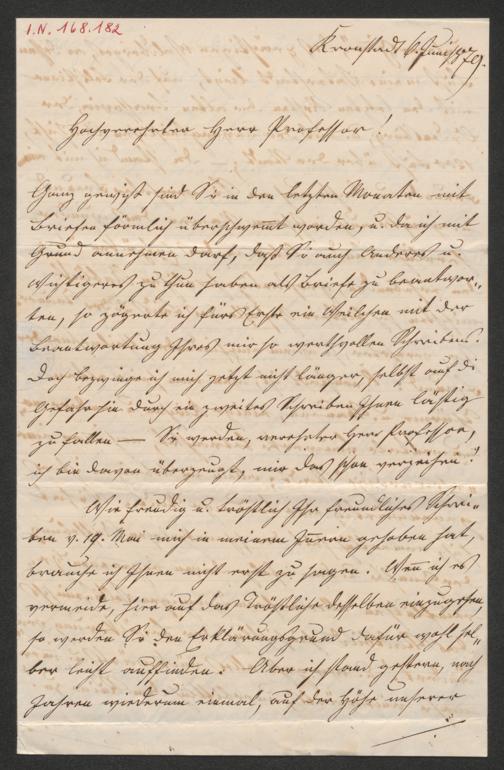 I.N. 168.182
Kronstadt 6. Juni 1879.
Hochverehrter Herr Professor!
Ganz gewiß sind Sie in den letzten Monaten mit
Briefen förmlich überschwemt worden, u. da ich mit
Grund annehmen darf, daß Sie auch Anderes u.
Wichtigeres zu thun haben als Briefe zu beantwor-
ten, so zögerte ich fürs Erste ein Weilchen mit der
Beantwortung Ihres mir so werthvollen Schreibens.
Doch bezwinge ich mich jetzt nicht länger, selbst auf die
Gefahr hin durch ein zweites Schreiben Ihnen lästig
zu fallen — Sie werden, verehrter Herr Professor,
ich bin davon überzeugt, mir das schon verzeihen!
Wie freudig u. tröstlich Ihr freundliches Schrei-
ben v. 19. Mai mich in meinem Innern gehoben hat,
brauche ich Ihnen nicht erst zu sagen. Wen ich es
vermeide, hier auf das Tröstliche desselben einzugehen,
so werden Sie den Erklärungsgrund dafür wohl sel-
ber leicht auffinden. Aber ich stand gestern, nach
Jahren wiederum einmal, auf der Höhe unserer